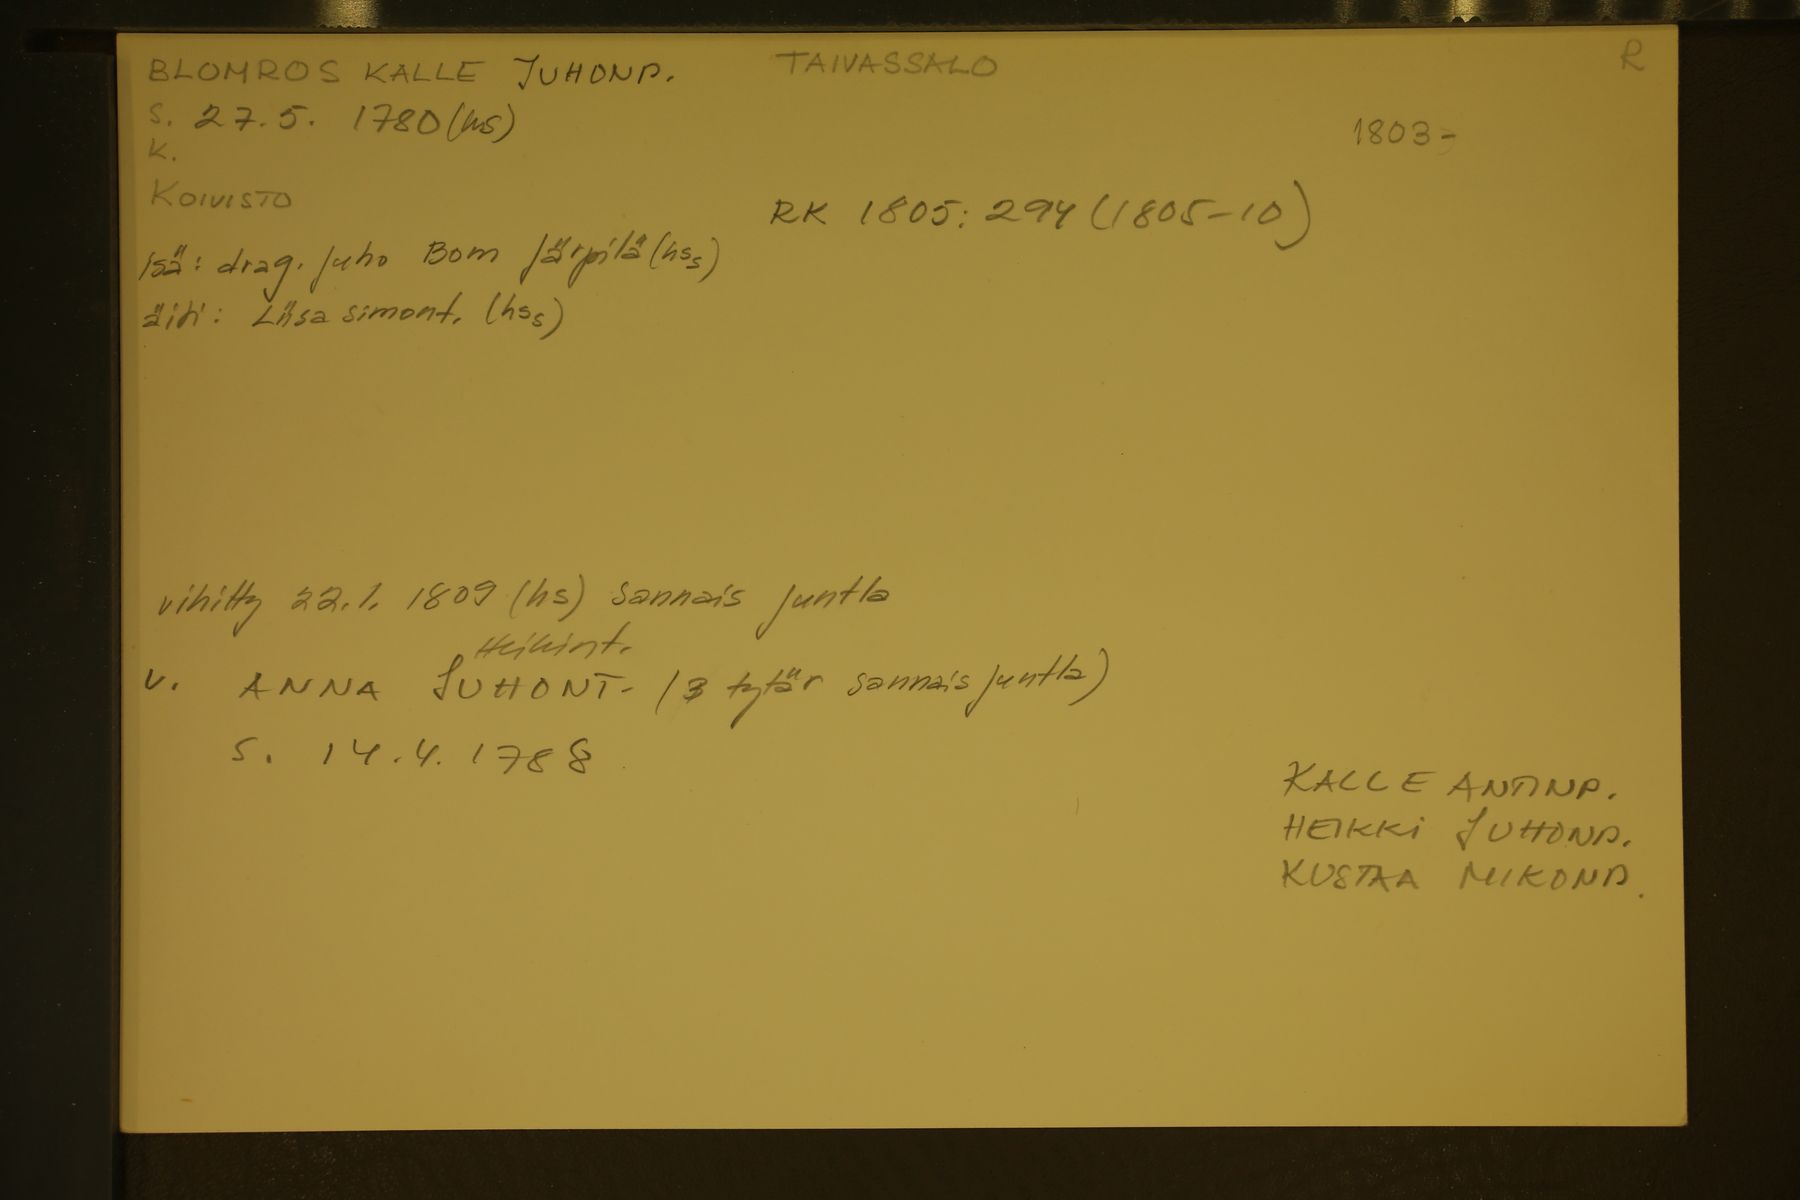 BLOMROS KALLE JUHONP. TAIVASSALO R
S. 27.5. 1780 (hs) 1803-
K.
KOIVISTO RK 1805: 294 (1805-10)
isä: drag. Juho Bom Järpilä (hss)
äiti: Liisa Simont. (hss)
vihitty 22.1. 1809 (hs) Sannais Juntla
Heikint.
V. ANNA JUHONT- (3 tytär Sannais Juntla)
S. 14.4. 1788
KALLE ANTINP.
HEIKKI JUHONP.
KUSTAA MIKONP.